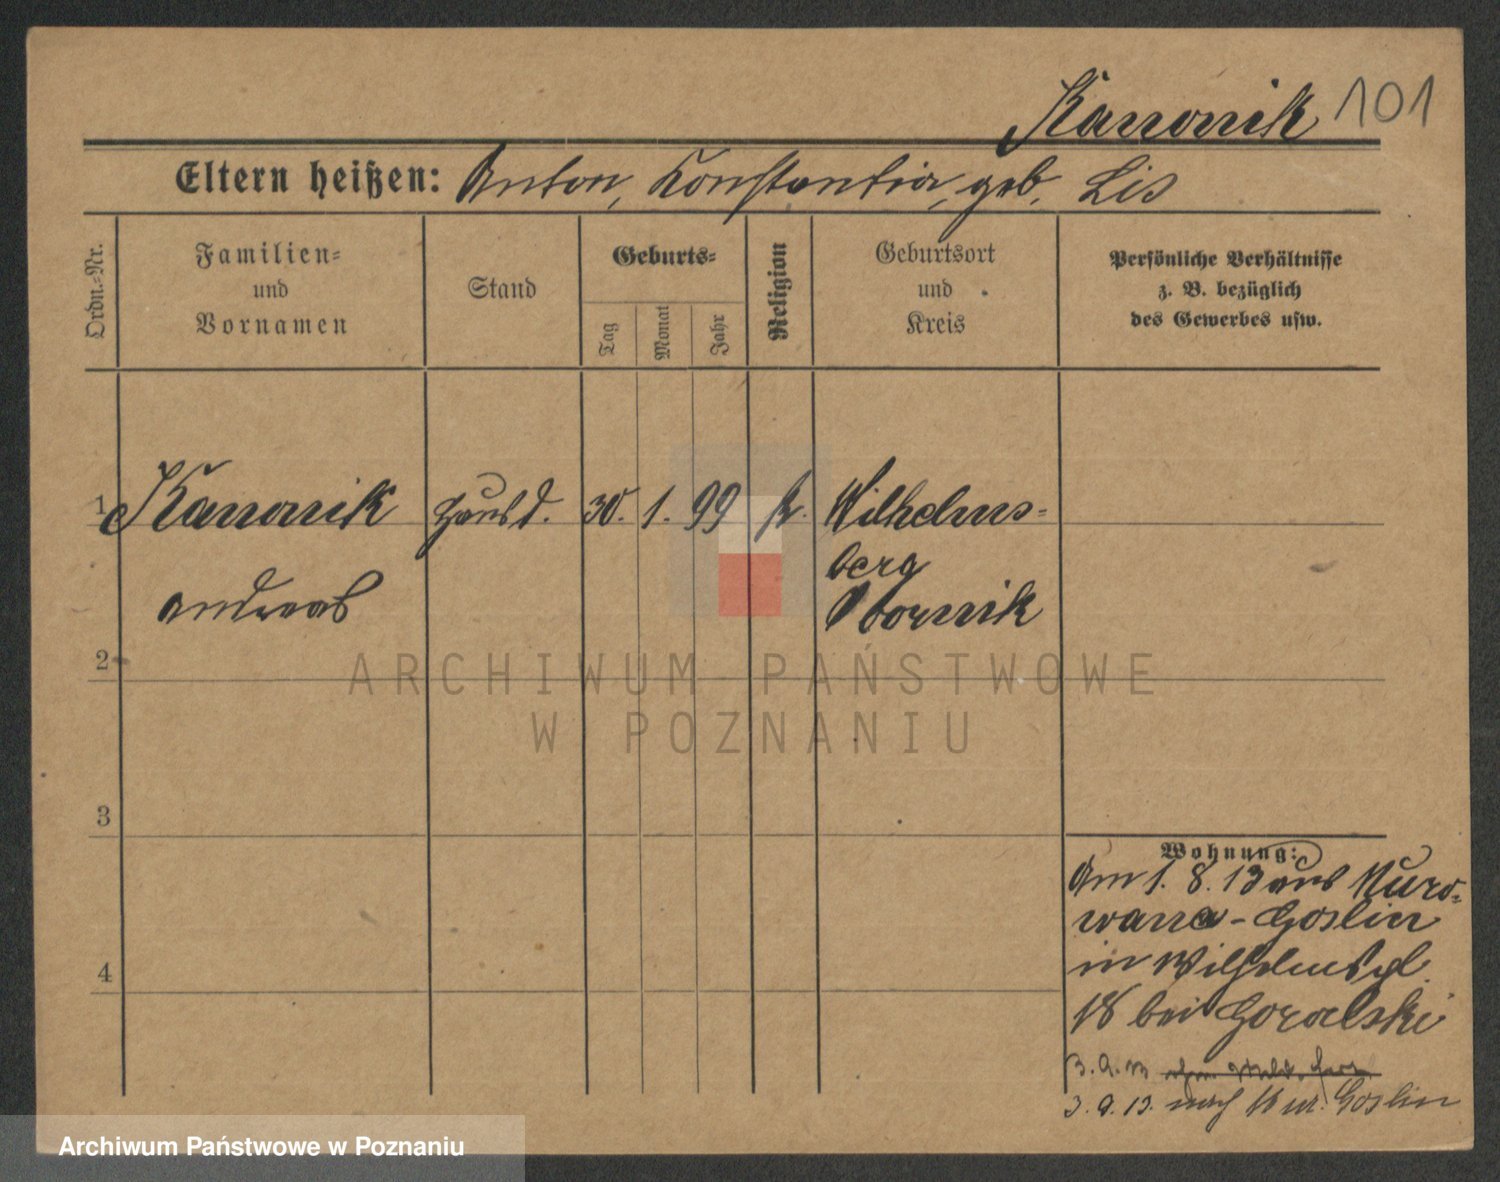 Kanonik 101
Eltern heißen: Anton, Konstantia, geb. Lis
Ordn.-Nr.
Familien-
und
Vornamen
Stand
Geburts-
Tag
Monat
Jahr
Religion
Geburtsort
und
Kreis
Persönliche Verhältnisse
z. B. bezüglich
des Gewerbes usw.
1 Kanonik Hausd. 30. 1. 99 k. Wilhelms-
berg
Andreas Obornik
2
ARCHIWUM PAŃSTWOWE
W POZNANIU
3
Wohnung:
Am 1. 8. 13 aus Muro-
wana-Goslin
in
18 bei Goralski
3. 9. 13
3. 9. 13. nach Mur. Goslin
4
Archiwum Państwowe w Poznaniu